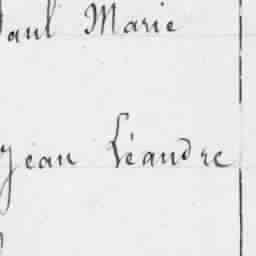 Paul Marie
Jean Léandre